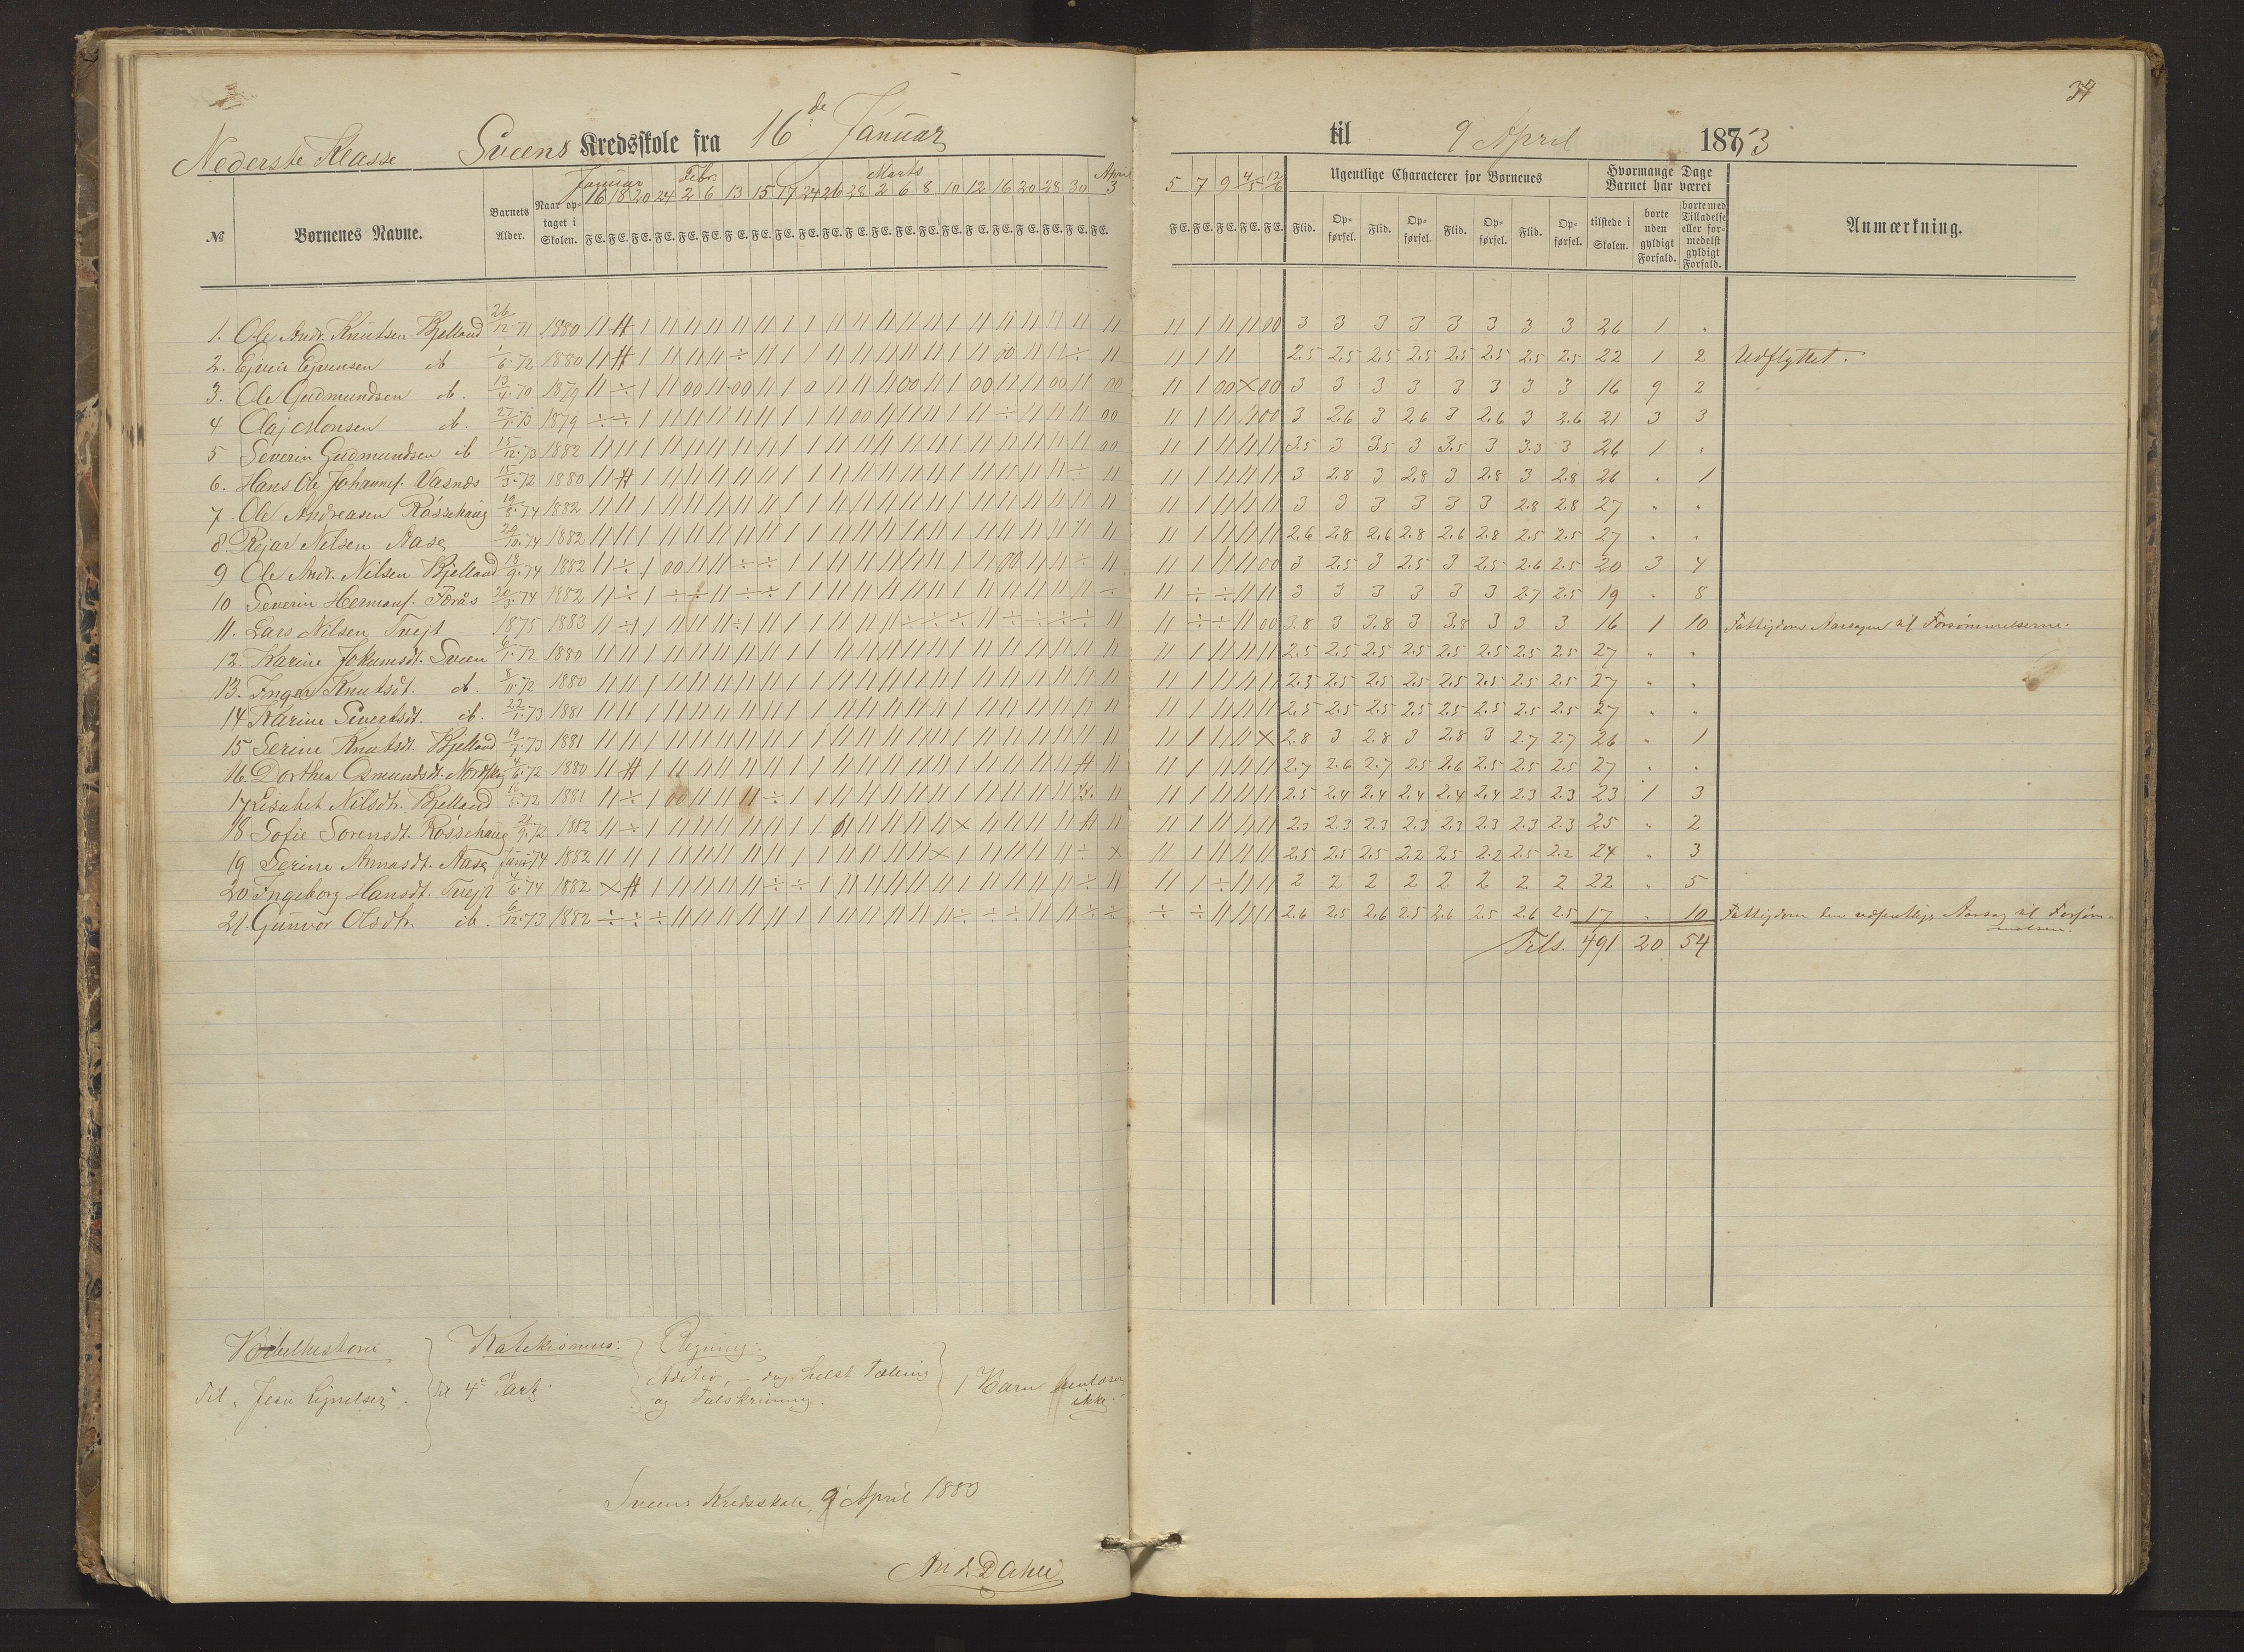 34
Nederste Klasse Sveens Kredsskole fra 16de Januar til 9 April 1883
Januar Febr. Marts April
16 18 20 24 2 6 13 15 17 24 26 28 2 6 8 10 12 16 20 28 30 3 5 7 9 4/5 12/6
Ugentlige Characterer for Børnenes
Hvormange Dage Barnet har været
№ Børnenes Navne. Barnets Alder. Naar optaget i Skolen. F E. Flid. Opførsel. Flid. Opførsel. Flid. Opførsel. Flid. Opførsel. tilstede i Skolen. borte uden gyldigt Forfald. borte med Tilladelse eller formedelst gyldigt Forfald. Anmærkning.
1. Ole Andr. Knutsen Kjelland 26/12.71 1880 3 3 3 3 3 3 3 3 26 1 "
2. Ejvin Ejvinsen ib 1/6.72 1880 2.5 2.5 2.5 2.5 2.5 2.5 2.5 2.5 22 1 2 Udflyttet.
3. Ole Gudmundsen ib. 13/4.70 1879 3 3 3 3 3 3 3 3 16 9 2
4 Olaj Monsen ib. 27/1.73 1879 3 2.6 3 2.6 3 2.6 3 2.6 21 3 3
5 Severin Gudmundsen ib 15/12.73 1882 3.5 3 3.5 3 3.5 3 3.3 3 26 1 "
6. Hans Ole Johannes. Vasnes 15/3.72 1880 3 2.8 3 2.8 3 2.8 3 2.8 26 " 1
7. Ole Andreasen Røssehaug 19/8.74 1882 3 3 3 3 3 3 2.8 2.8 27 " "
8. Rejar Nilsen Aase 29/10.74 1882 2.6 2.8 2.6 2.8 2.6 2.8 2.5 2.5 27 " "
9 Ole Andr. Nilsen Kjelland 18/9.74 1882 3 2.5 3 2.5 3 2.5 2.6 2.5 20 3 4
10 Severin Hermans. Porås 20/3.74 1882 3 3 3 3 3 3 2.7 2.5 19 " 8
11. Lars Nilsen Tvejt 1875 1883 3.8 3 3.8 3 3.8 3 3 3 16 1 10 Fattigdom Aarsagen til Forsømmelserne.
12. Karine Jokumsdt. Sveen 6/1.72 1880 2.5 2.5 2.5 2.5 2.5 2.5 2.5 2.5 27 " "
13. Inger Knutsdt. ib. 8/11.72 1880 2.3 2.5 2.5 2.5 2.5 2.5 2.5 2.5 27 " "
14 Karine Sivertsdt. ib. 22/1.73 1881 2.5 2.5 2.5 2.5 2.5 2.5 2.5 2.5 27 " "
15 Serine Knutsdt. Kjelland 19/1.73 1881 2.8 3 2.8 3 2.8 3 2.7 2.7 26 " 1
16. Dorthea Osmundsdt. 4/6.72 1880 2.7 2.6 2.7 2.5 2.6 2.5 2.5 2.5 27 " "
17 Lisabet Nilsdtr. Kjelland 16/5.72 1881 2.5 2.4 2.4 2.4 2.4 2.4 2.3 2.3 23 1 3
18 Sofie Sorensdt. Røssehaug 21/9.72 1882 2.3 2.3 2.3 2.3 2.3 2.3 2.3 2.3 25 " 2
19 Serine Annasdt. Aase Juni 74 1882 2.5 2.5 2.5 2.2 2.5 2.2 2.5 2.2 24 " 3
20 Ingeborg Hansdt. Tvejt 4/6.74 1882 2 2 2 2 2 2 2 2 22 " 5
21. Gunvor Olsdtr. ib. 6/12.73 1882 2.6 2.5 2.6 2.5 2.6 2.5 2.6 2.5 17 " 10 Fattigdom den væsentlige Aarsag til Forsømmelsen.
Tils. 491 20 54
Bibelhistorie Katekismus: Regning:
Til "Jesu Lignelser". Til 4de Part. Aditio, – dog helst Tælling og Talskrivning. 1 Barn ikke.
Sveens Kredsskole, 9 April 1883
And. Dahle